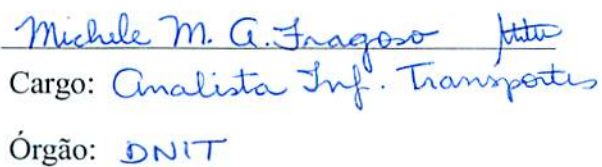 Michele M. A. Fragoso
Cargo: Analista Inf. Transportes
Órgão: DNIT